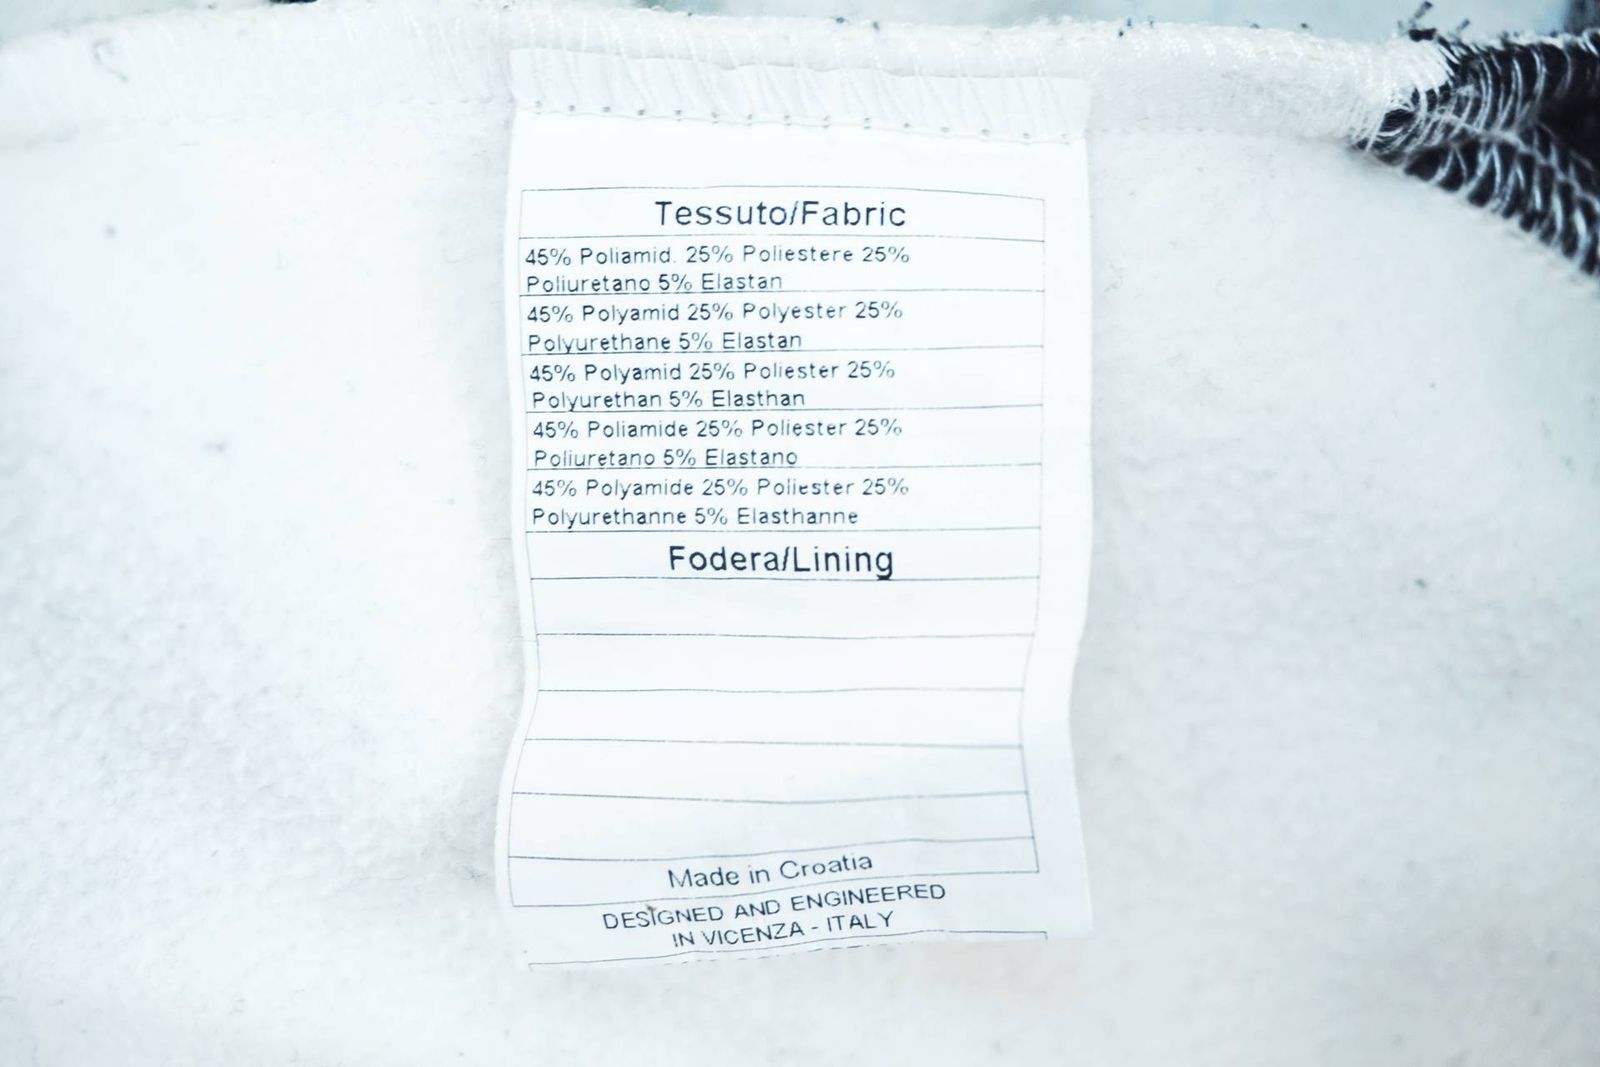 Tessuto/Fabric
45% Poliamid. 25% Poliestere 25%
Poliuretano 5% Elastan
45% Polyamid 25% Polyester 25%
Polyurethane 5% Elastan
45% Polyamid 25% Poliester 25%
Polyurethan 5% Elasthan
45% Poliamide 25% Poliester 25%
Poliuretano 5% Elastano
45% Polyamide 25% Poliester 25%
Polyurethanne 5% Elasthanne
Fodera/Lining
Made in Croatia
DESIGNED AND ENGINEERED
IN VICENZA - ITALY